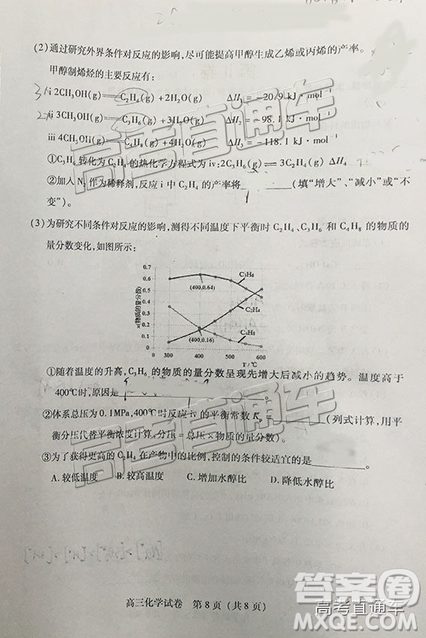 (2)通过研究外界条件对反应的影响,尽可能提高甲醇生成乙烯或丙烯的产率。
甲醇制烯烃的主要反应有:
i 2CH₃OH(g)═C₂H₄(g)+2H₂O(g) ΔH₁=-20.9 kJ·mol⁻¹
ii 3CH₃OH(g)═C₃H₆(g)+3H₂O(g) ΔH₂=-98.1 kJ·mol⁻¹
iii 4CH₃OH(g) ═ -118.1 kJ·mol
①C₂H₄转化为C₃H₆的热化学方程式为iv:2C₃H₆(g)═3C₂H₄(g) ΔH₄
②加入N₂作为稀释剂,反应i中C₂H₄的产率将(填“增大”、“减小”或“不
变”)。
(3)为研究不同条件对反应的影响,测得不同温度下平衡时C₂H₄、C₃H₆和C₄H₈的物质的
量分数变化,如图所示:
0.7
0.6
0.5
0.4
0.3
0.2
0.1
0
x(物质的量分数)
(400,0.64)
(400,0.16)
C₃H₆
C₂H₄
C₄H₈
300 400 500 600
T/℃
①随着温度的升高,C₃H₆的物质的量分数呈现先增大后减小的趋势。温度高于
400℃时,原因是
②体系总压为0.1MPa,400℃时反应iv的平衡常数Kp=(列式计算,用平
衡分压代替平衡浓度计算,分压=总压×物质的量分数)。
③为了获得更高的C₂H₄在产物中的比例,控制的条件较适宜的是。
A.较低温度 B.较高温度 C.增加水醇比 D.降低水醇比
高三化学试卷 第8页(共8页)
高考直通车
高考直通车
高考直通车
答案圈